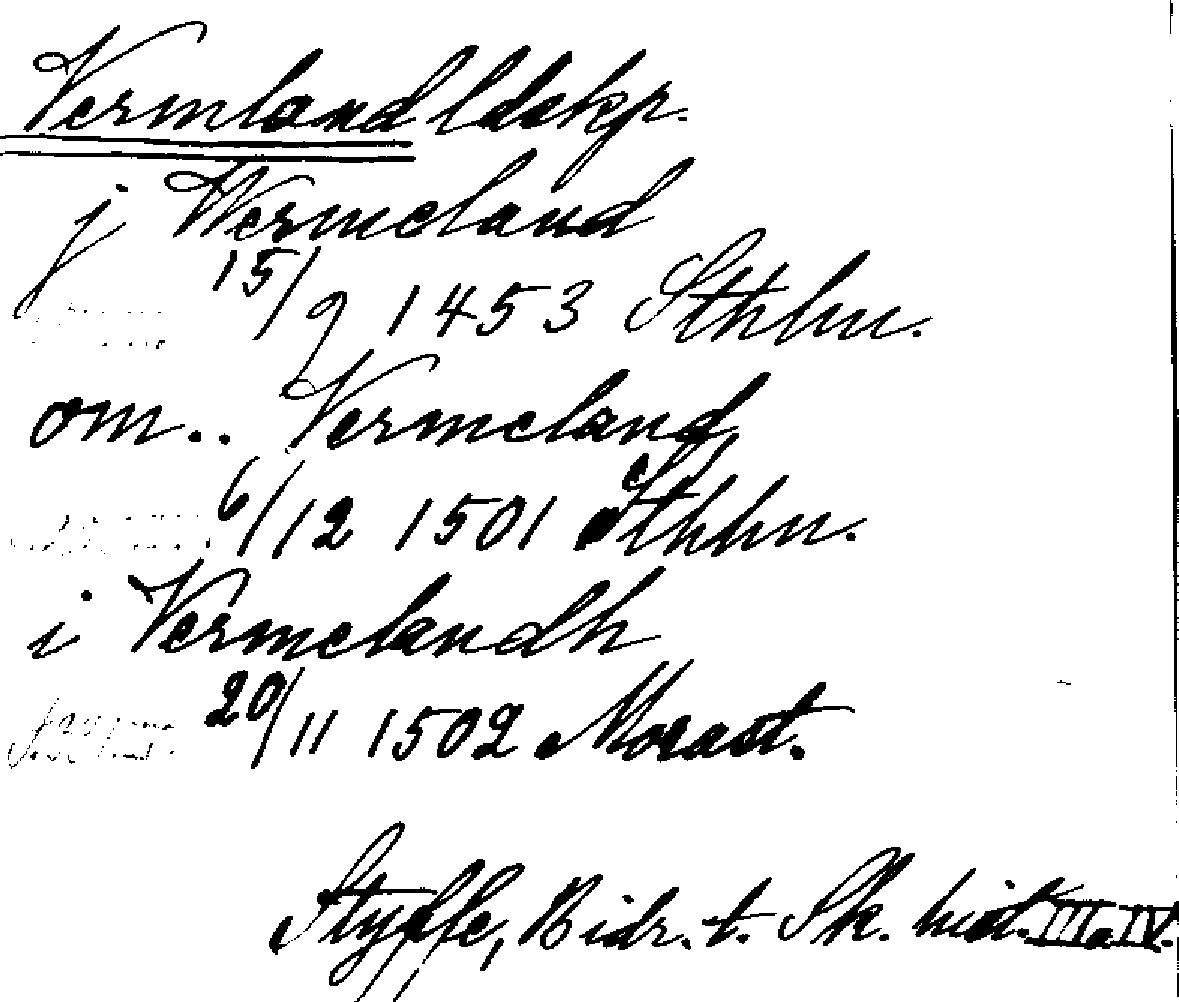 Vermland ldskp.
j Wermeland
15/9 1453 Sthlm.
om.. Vermeland
6/12 1501 Sthlm.
i Vermelandh
20/11 1502 Morast.
Styffe, Bidr. t. Sk. hist. III o IV.